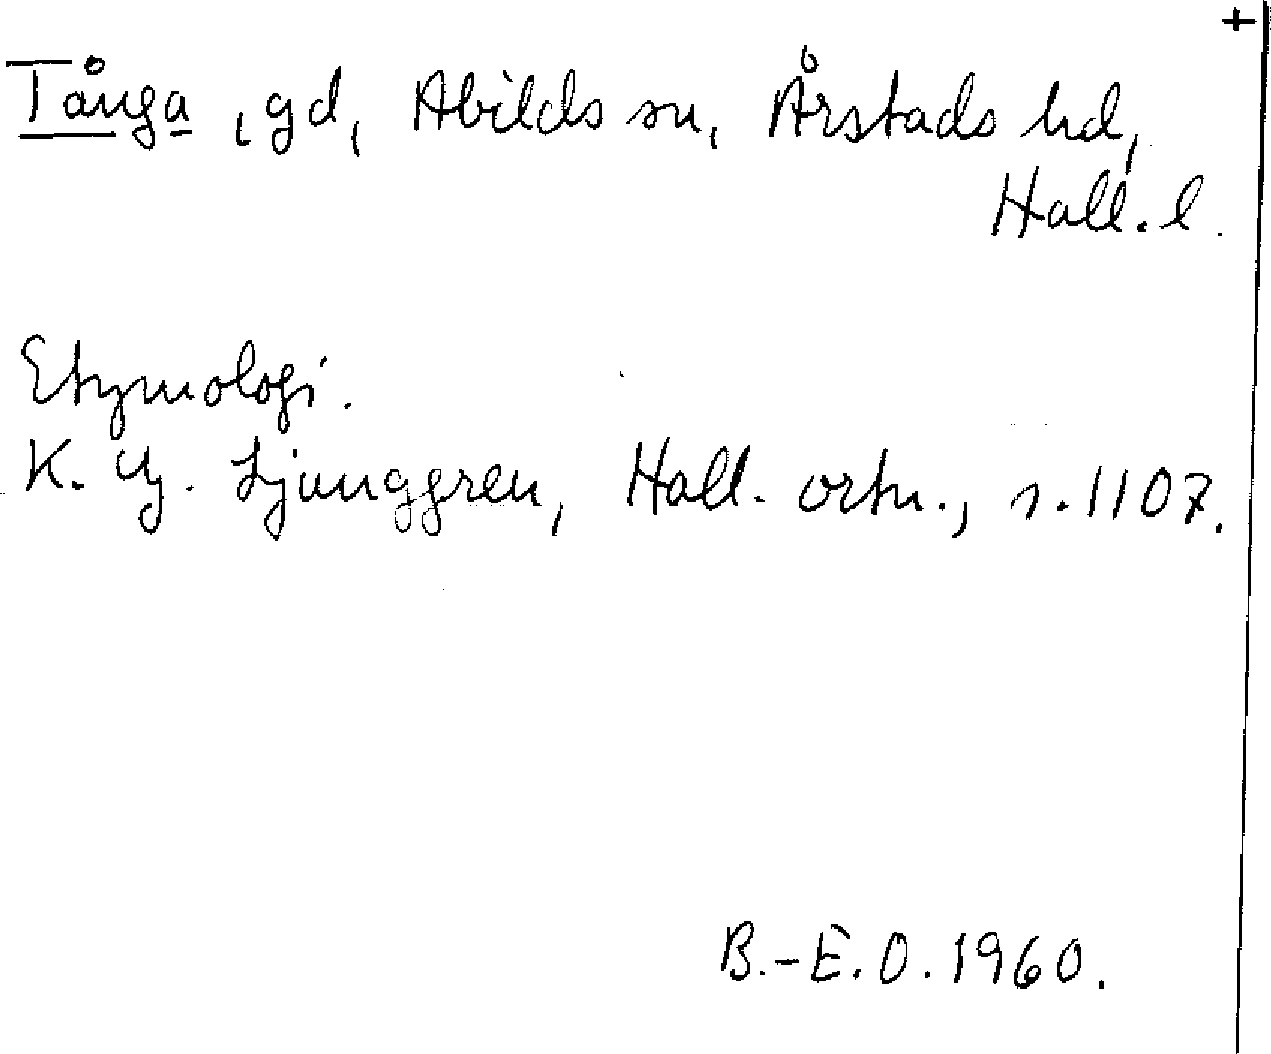 +
Tånga, gd, Abilds sn, Årstads hd,
Hall. l.
Etymologi.
K. G. Ljunggren, Hall. ortn., s. 1107.
B.-E.O. 1960.